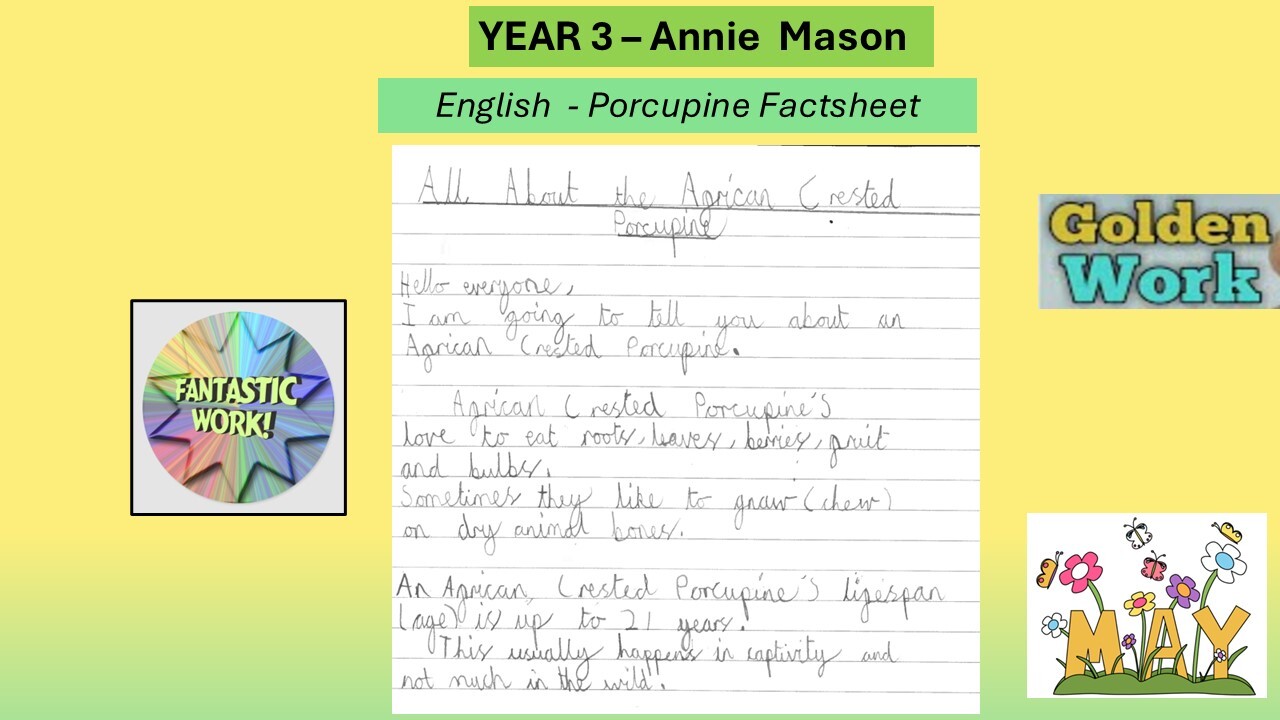 YEAR 3 – Annie Mason
English - Porcupine Factsheet
All About the African Crested
Porcupine
Hello everyone,
I am going to tell you about an
African Crested Porcupine.
African Crested Porcupine's
love to eat roots, leaves, berries, fruit
and bulbs.
Sometimes they like to gnaw (chew)
on dry animal bones.
An African, Crested Porcupine's lifespan
(age) is up to 21 years.
This usually happens in captivity and
not much in the wild.
FANTASTIC
WORK!
Golden
Work
MAY